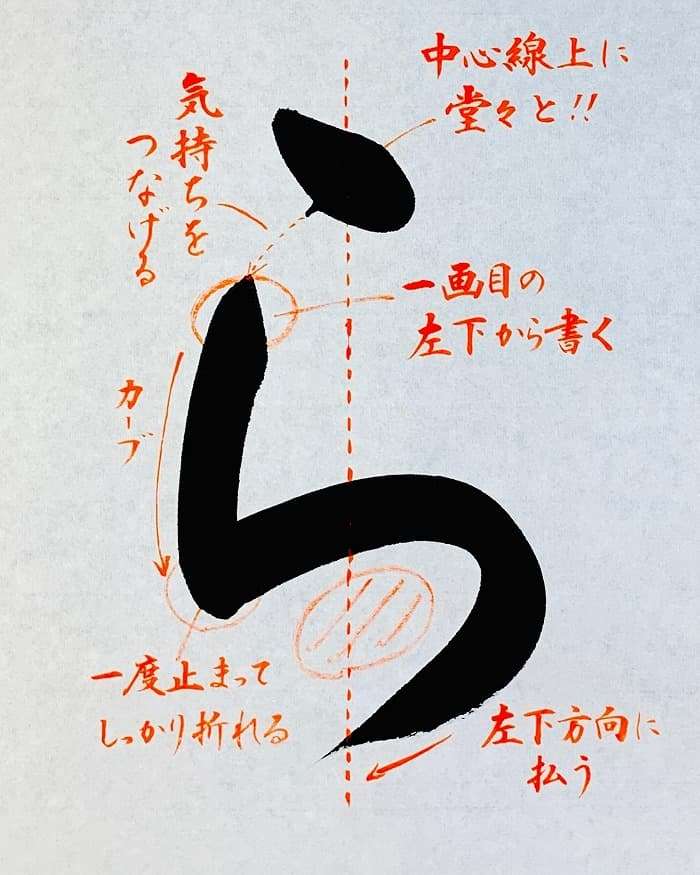 中心線上に
堂々と!!
気持ちを
つなげる
一画目の
左下から書く
カーブ
ら
一度止まって
しっかり折れる
左下方向に
払う